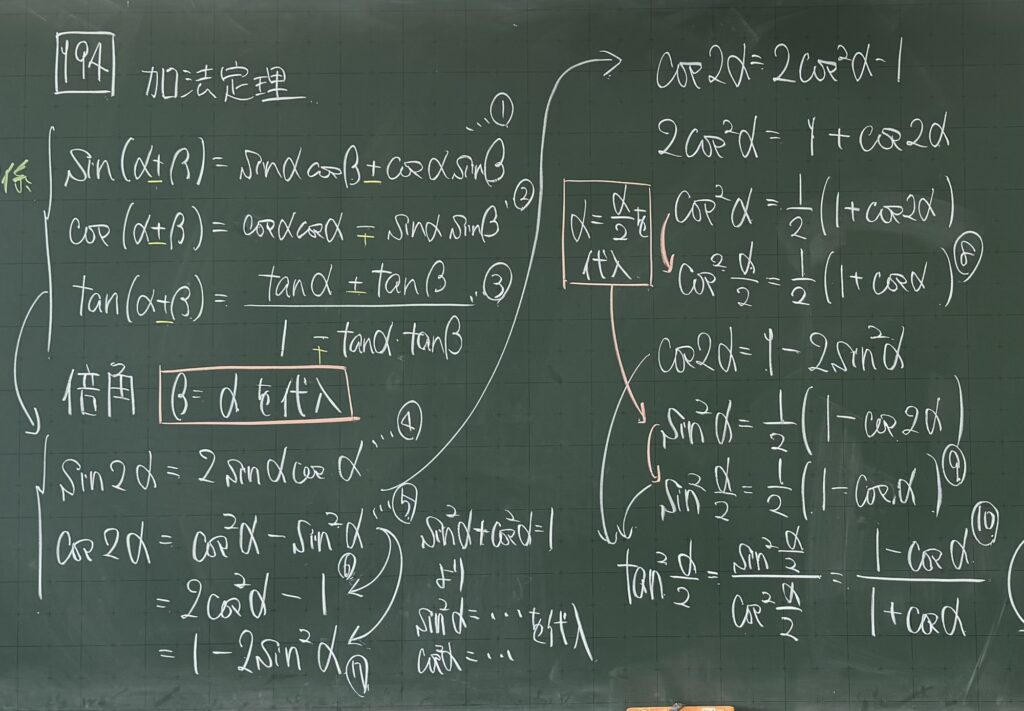 194 加法定理
sin(α±β)=sinαcosβ±cosαsinβ …①
cos(α±β)=cosαcosα∓sinαsinβ …②
tan(α±β)=(tanα±tanβ)/(1∓tanα・tanβ) …③
倍角 β=αを代入
sin2α=2sinαcosα …④
cos2α=cos²α-sin²α …⑤
=2cos²α-1 ⑥
=1-2sin²α ⑦
sin²α+cos²α=1
より
sin²α=…を代入
cos²α=…
cos2α=2cos²α-1
2cos²α=1+cos2α
α=α/2を
代入
cos²α=1/2(1+cos2α)
cos²α/2=1/2(1+cosα) ⑧
cos2α=1-2sin²α
sin²α=1/2(1-cos2α)
sin²α/2=1/2(1-cosα) ⑨
tan²α/2=(sin²α/2)/(cos²α/2)=(1-cosα)/(1+cosα) ⑩